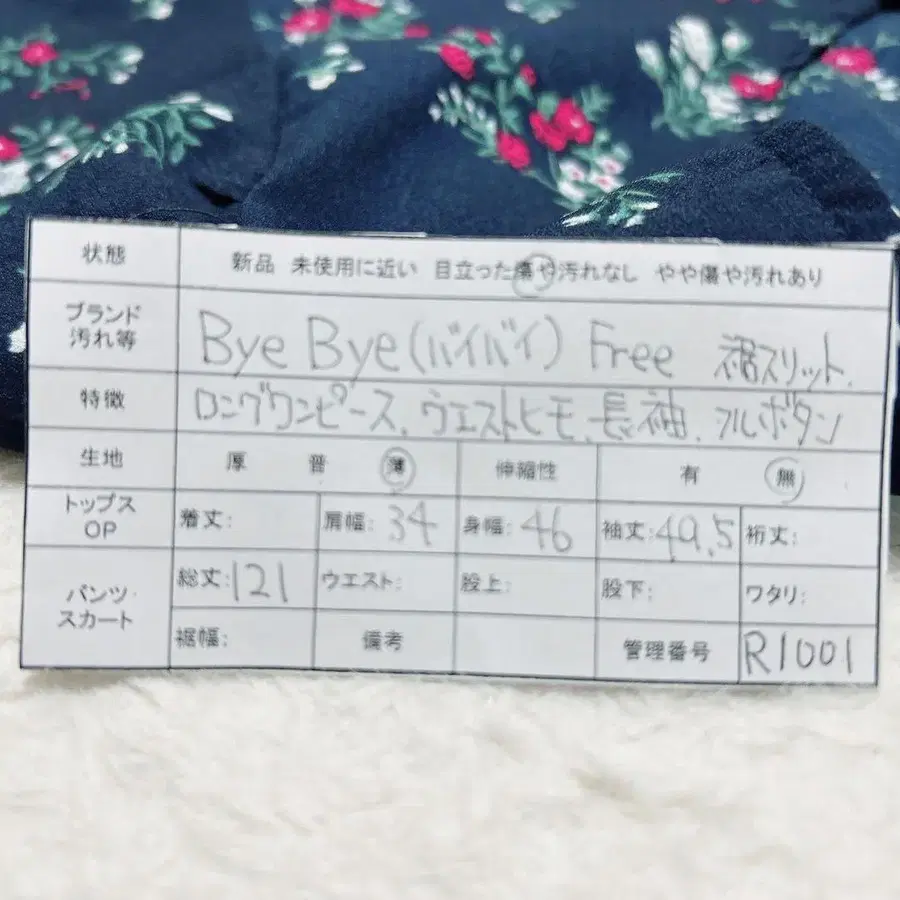 状態 新品 未使用に近い 目立った傷や汚れなし やや傷や汚れあり
ブランド 汚れ等 Bye Bye(バイバイ) Free 裾スリット.
特徴 ロングワンピース、ウエストヒモ、長袖、フルボタン
生地 厚 普 薄 伸縮性 有 無
トップス OP 着丈: 肩幅: 34 身幅: 46 袖丈: 49.5 裄丈:
パンツ スカート 総丈: 121 ウエスト: 股上: 股下: ワタリ:
裾幅: 備考 管理番号 R1001